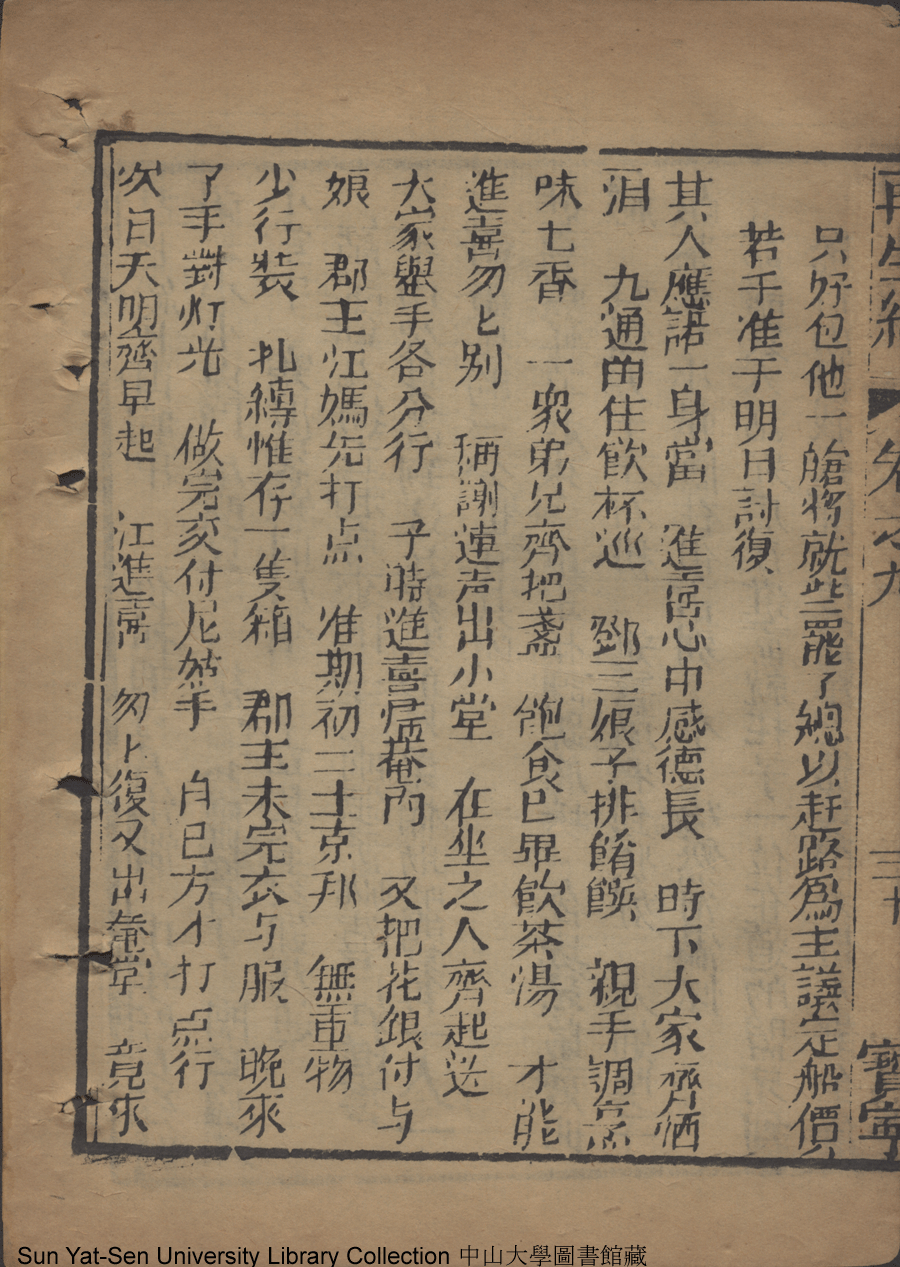 再生緣 卷之九 三十 寶寧
只好包他一艙將就些罷了總以赶路爲主議定船價只
若干准于明日討復
其人應諾一身當 進喜心中感德長 時下大家齊洒
泪 九通留住飲杯巡 鄧三娘子排餚饌 親手調烹
味七香 一衆弟兄齊把盞 飽食已畢飲茶湯 才能
進喜匆匕别 稱謝連声出小堂 在坐之人齊起送
大家舉手各分行 子時進喜居菴内 又把花銀付与
娘 郡主江媽先打点 准期初二上京邦 無重物
少行裝 扎縛惟存一隻箱 郡主未完衣与服 晚來
了手對灯光 做完交付尼姑手 自已方才打点行
次日天明齊早起 江進喜 匆匕復又出菴堂 竟來
Sun Yat-Sen University Library Collection 中山大學圖書館藏